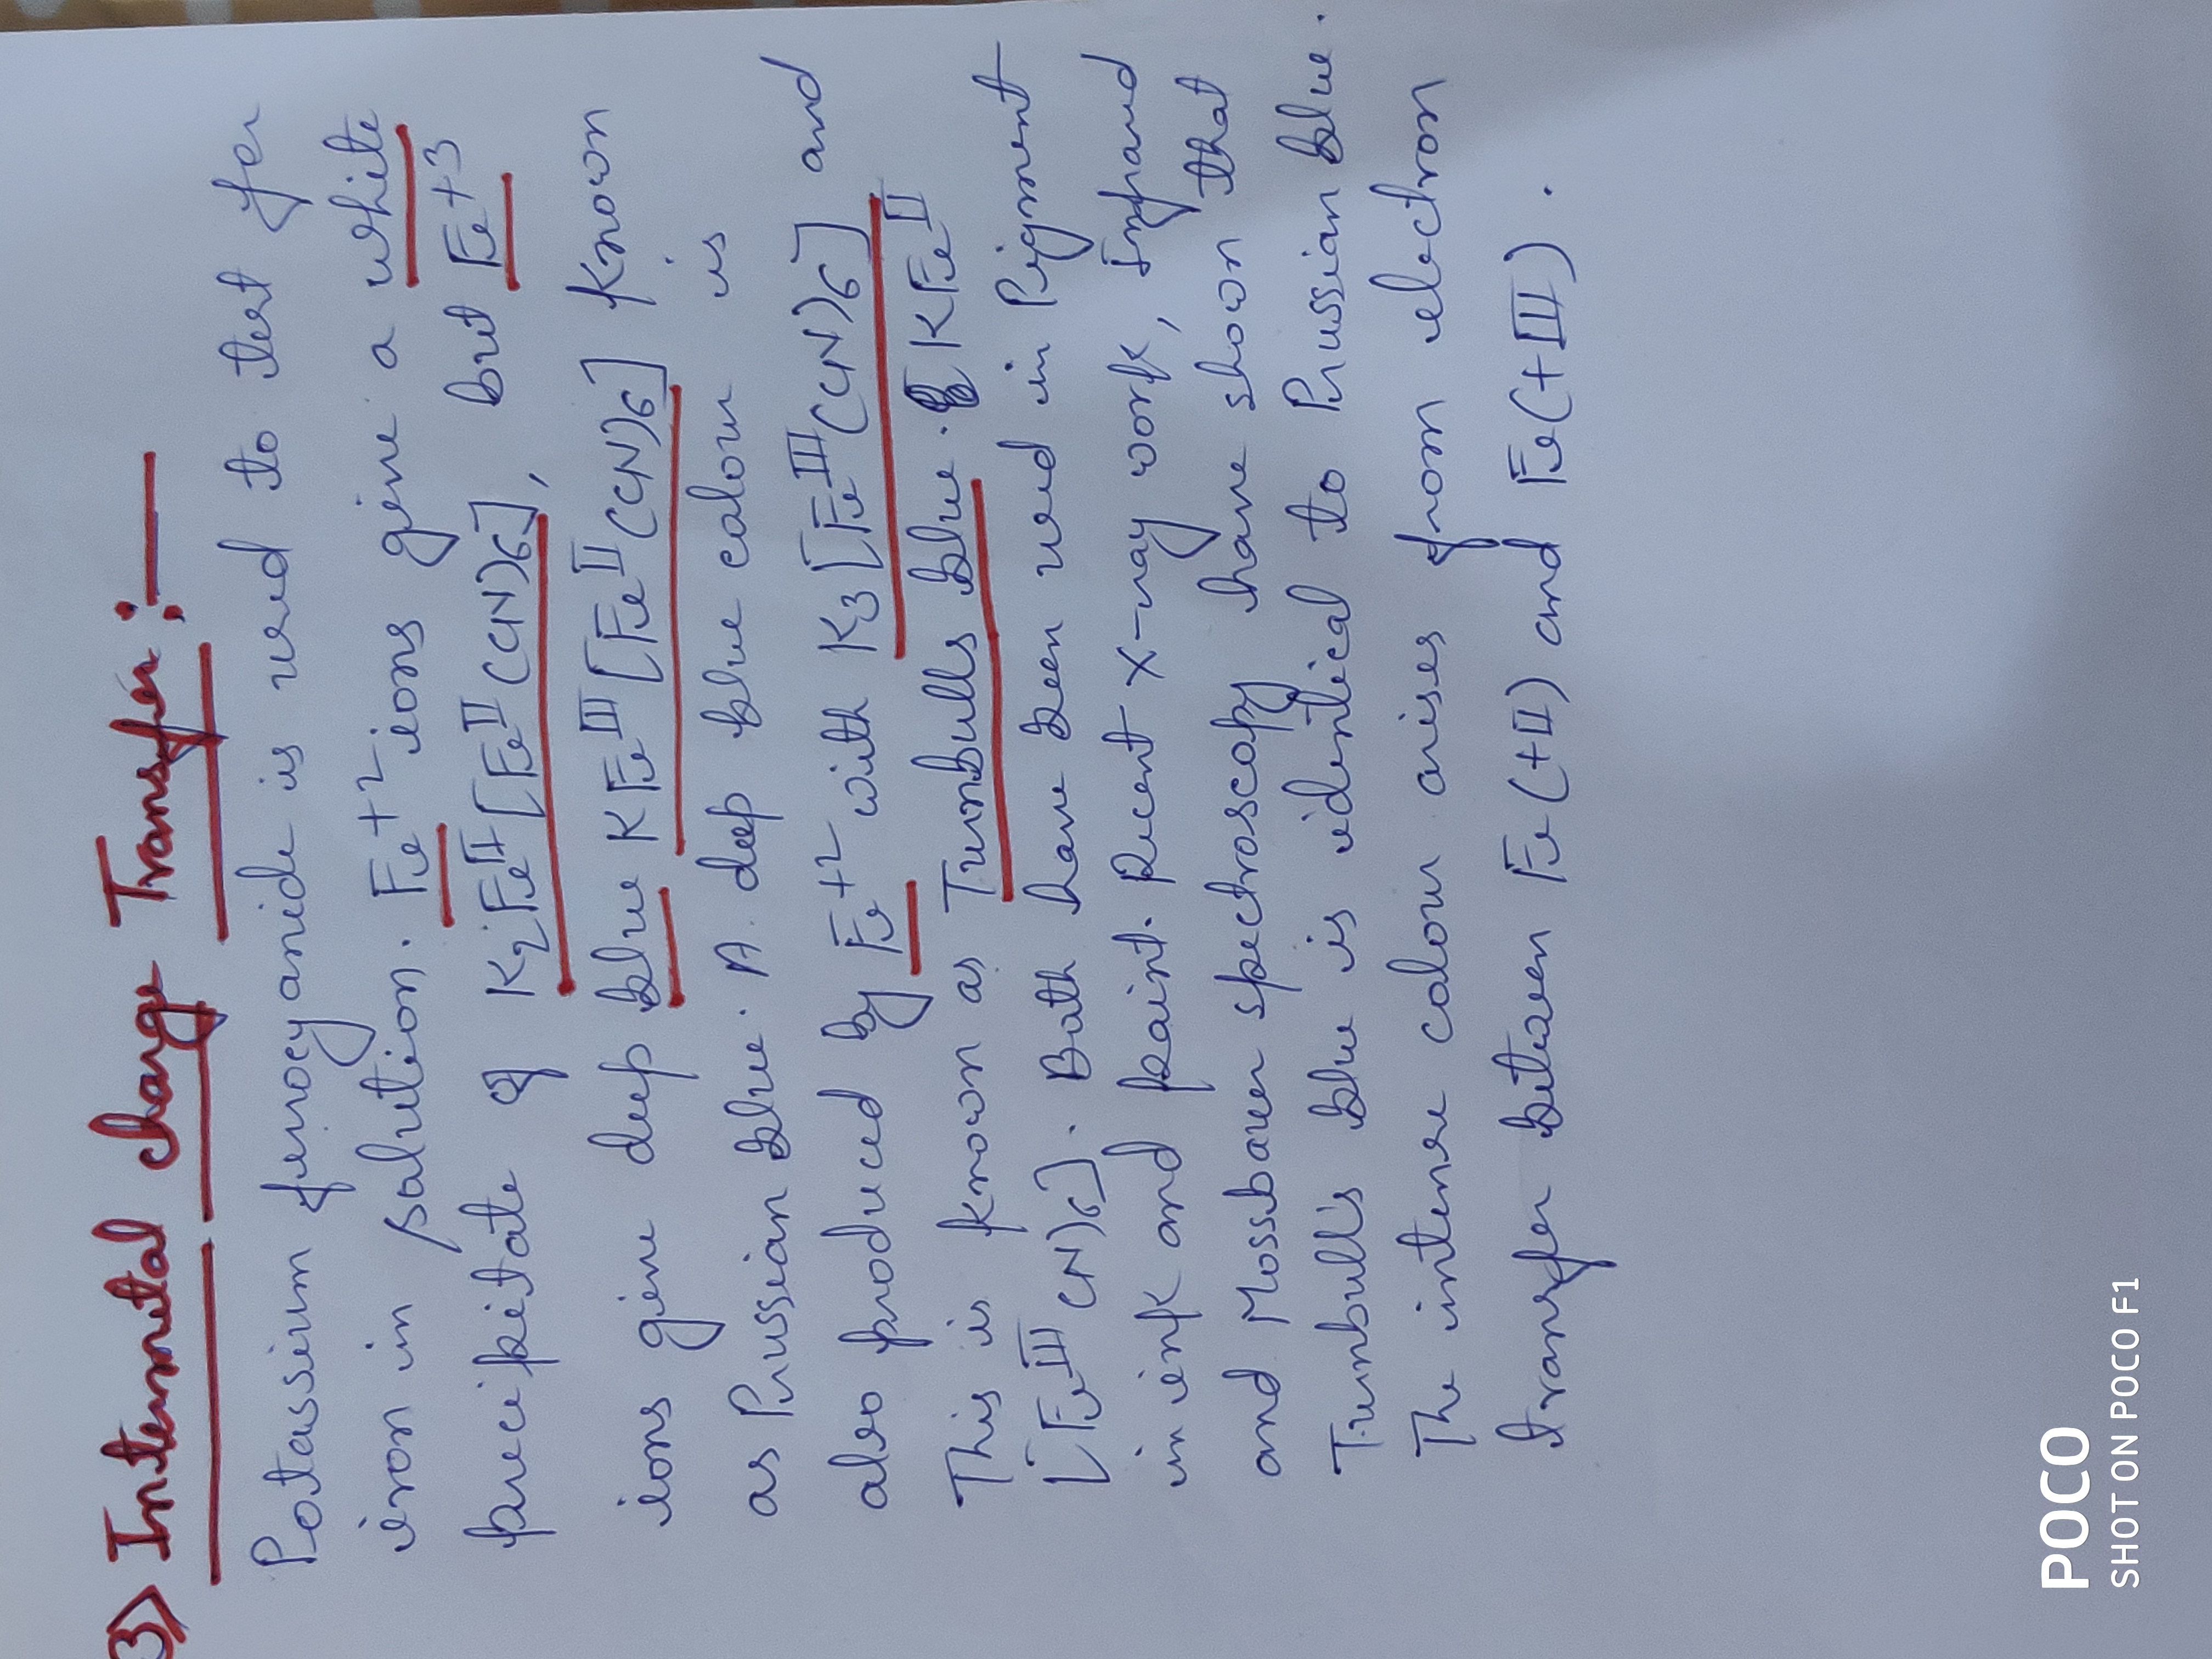 3) Intermetal charge Transfer :—
Potassium ferrocyanide is used to test for
iron in solution. Fe+2 ions give a white
precipitate of K2FeII[FeII(CN)6], but Fe+3
ions give deep blue KFeIII[FeII(CN)6] known
as Prussian blue. A deep blue colour is
also produced by Fe+2 with K3[FeIII(CN)6] and
This is known as Turnbulls blue. KFeII
[FeIII CN)6]. Both have been used in Pigment
in ink and paint. Recent X-ray work, Infrard
and Mossbauer spectroscopy have shown that
Turnbull's blue is identical to Prussian blue.
The intense colour arises from electron
transfer between Fe(+II) and Fe(+III).
POCO
SHOT ON POCO F1